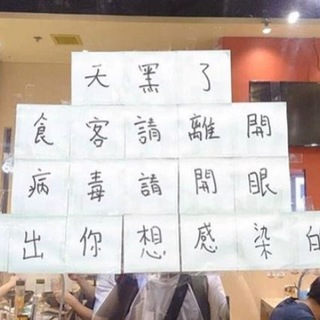 天黑了
食客請離開
病毒請開眼
出你想感染的